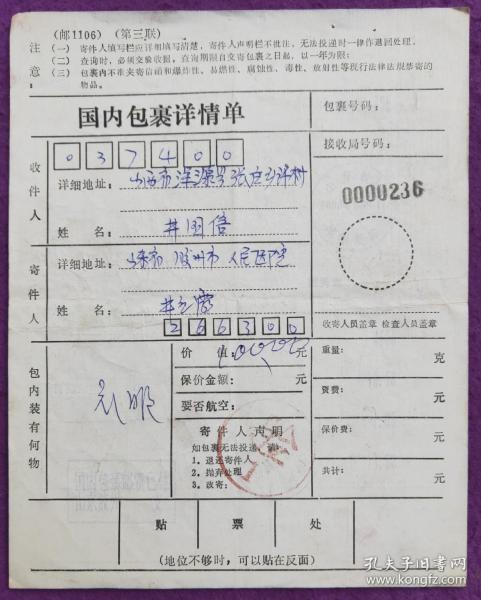 (邮1106) (第三联)
注意:
(一) 寄件人填写栏应详细填写清楚,寄件人声明栏不批注,无法投递时一律作退回处理。
(二) 查询时,必须交验收据,查询期限自交寄包裹之日起,以一年为限;
(三) 包裹内不准夹寄信函和爆炸性、易燃性、腐蚀性、毒性、放射性等现行法律法规禁寄的
物品。
国内包裹详情单
包裹号码:
收件人
037400
接收局号码:
详细地址:
0000236
姓 名:
寄件人
详细地址: 胶州市 人民医院
姓 名:
266300
收寄人员盖章 检查人员盖章
包内装有何物
价 值: 元
重量: 克
保价金额: 元
资费: 元
要否航空:
寄件人声明
保价费: 元
如包裹无法投递,请:
1.退还寄件人
2.抛弃处理
3.改寄:
共计: 元
贴 票 处
(地位不够时,可以贴在反面)
孔夫子旧书网